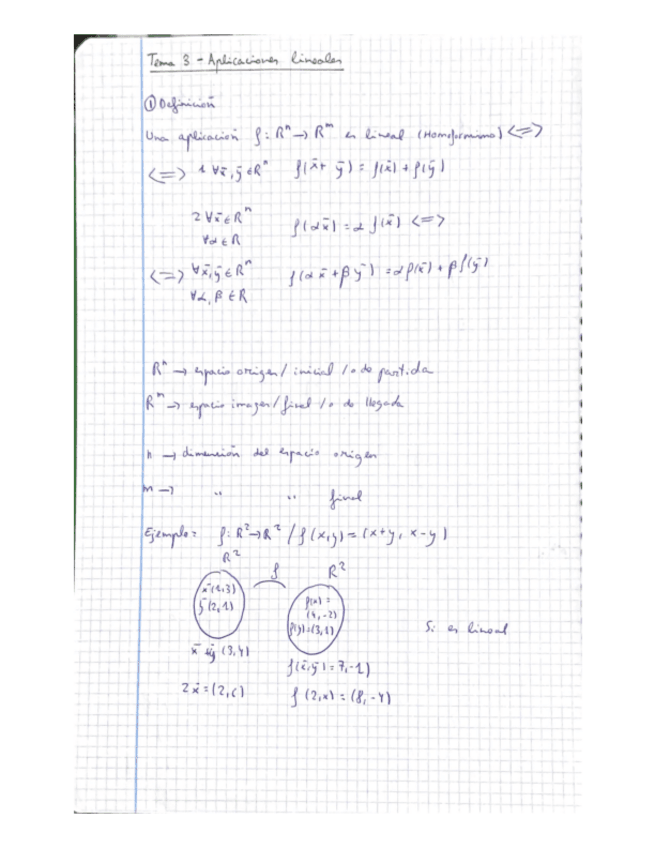 Tema 3 - Aplicaciones lineales
① Definición
Una aplicación f: Rⁿ → Rᵐ es lineal (Homoformismo) <=>
<=> 1 ∀x̄, ȳ ∈ Rⁿ f(x̄ + ȳ) = f(x̄) + f(ȳ)
2 ∀x̄ ∈ Rⁿ
∀α ∈ R f(αx̄) = α f(x̄) <=>
<=> ∀x̄, ȳ ∈ Rⁿ f(αx̄ + βȳ) = αf(x̄) + βf(ȳ)
∀α, β ∈ R
Rⁿ → espacio origen / inicial / o de partida
Rᵐ → espacio imagen / final / o de llegada
n → dimensión del espacio origen
m → " " final
Ejemplo: f: R² → R² / f(x,y) = (x+y, x-y)
R² f R²
x̄(1,3)
ȳ(2,1)
f(x) =
(4,-2)
f(y)=(3,1)
Si es lineal
x̄ ȳ (3,4)
f(x̄,ȳ) = 7,-1)
2x̄ = (2,6) f(2,x) = (8,-4)